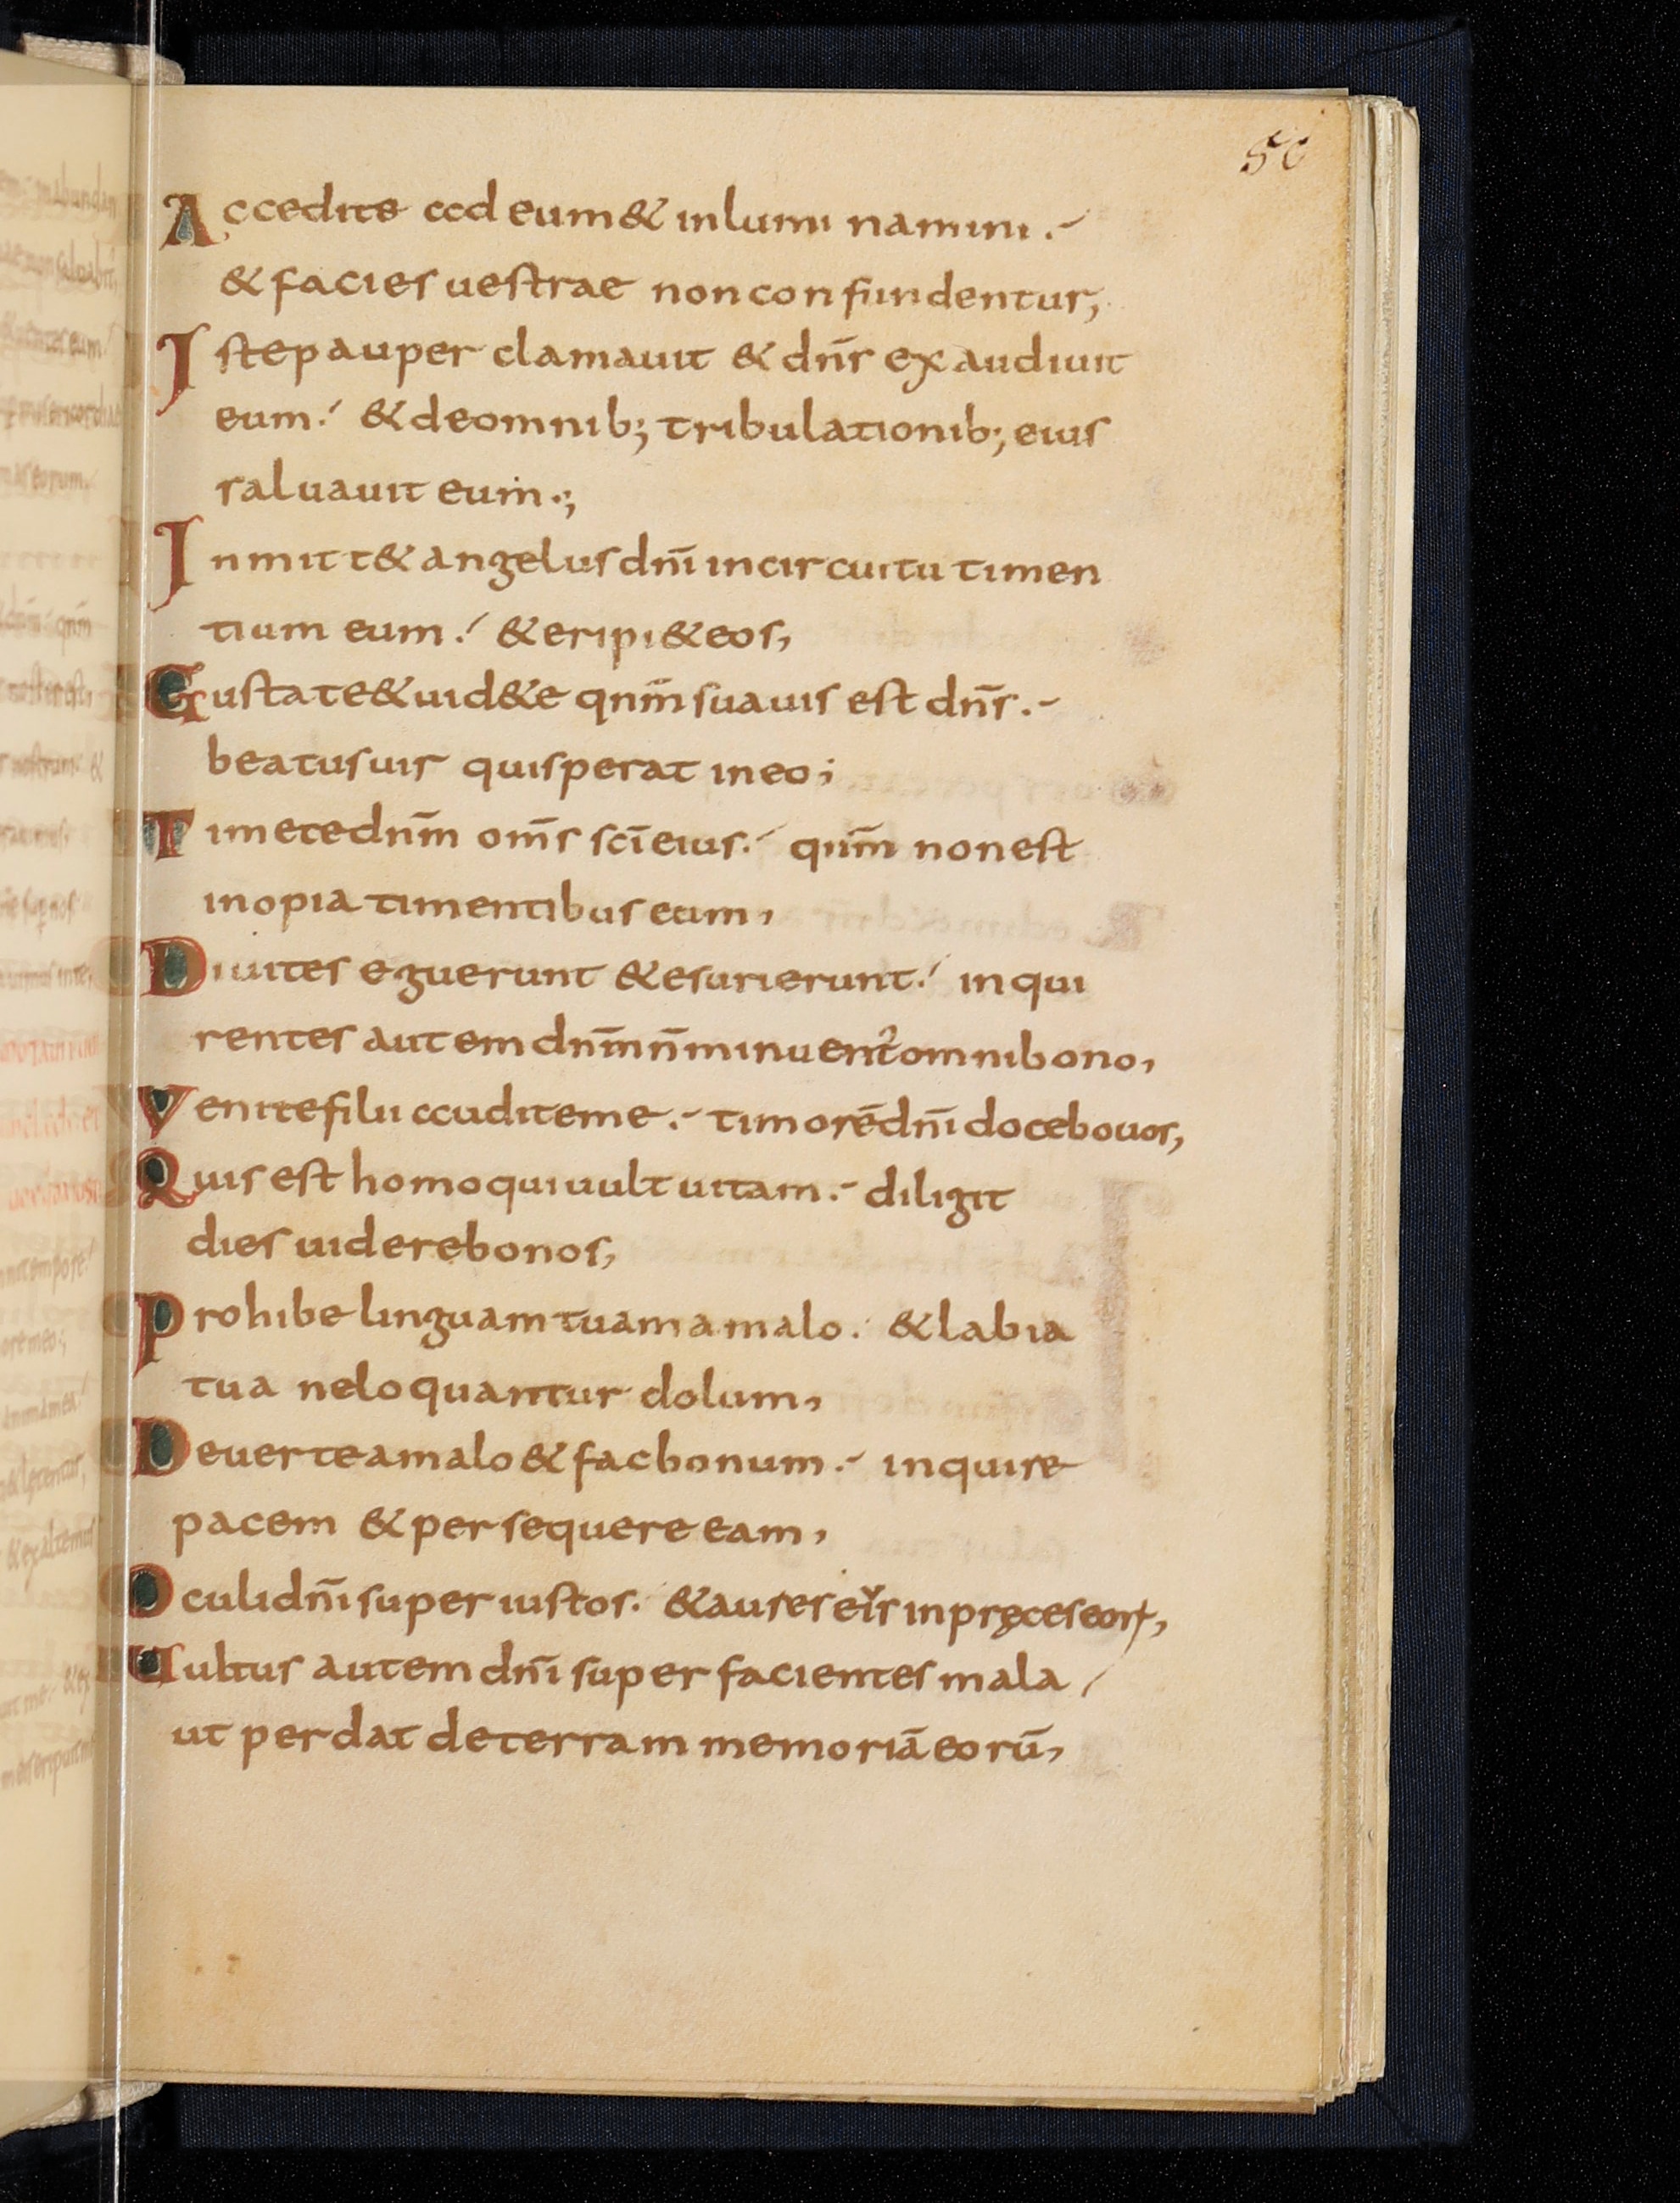 50
Accedite ad eum & inlumi namini .-
& facies uestrae non confundentur;
Iste pauper clamauit & dn̄s exaudiuit
eum.' & de omnib; tribulationib; eius
saluauit eum.;
Inmitt& angelus dn̄i in circuitu timen
tium eum.' & eripi& eos,
Gustate & uid&e qnm̄ suauis est dn̄s.-
beatus uir qui sperat in eo;
Timete dnm̄ om̄s sc̄i eius.' qnm̄ non est
inopia timentibus eum,
Diuites eguerunt & esurierunt.' inqui
rentes autem dnm̄ n̄ minuent᷑ omni bono,
Venite filii audite me.- timorē dn̄i docebo uos,
Quis est homo qui uult uitam.- diligit
dies uidere bonos,
Prohibe linguam tuam a malo. & labia
tua ne loquantur dolum,
Deuerte a malo & fac bonum.- inquire
pacem & persequere eam,
Oculi dn̄i super iustos. & aures eīs in pręces eoꝝ,
Uultus autem dn̄i super facientes mala /
ut perdat de terram memoriā eorū,